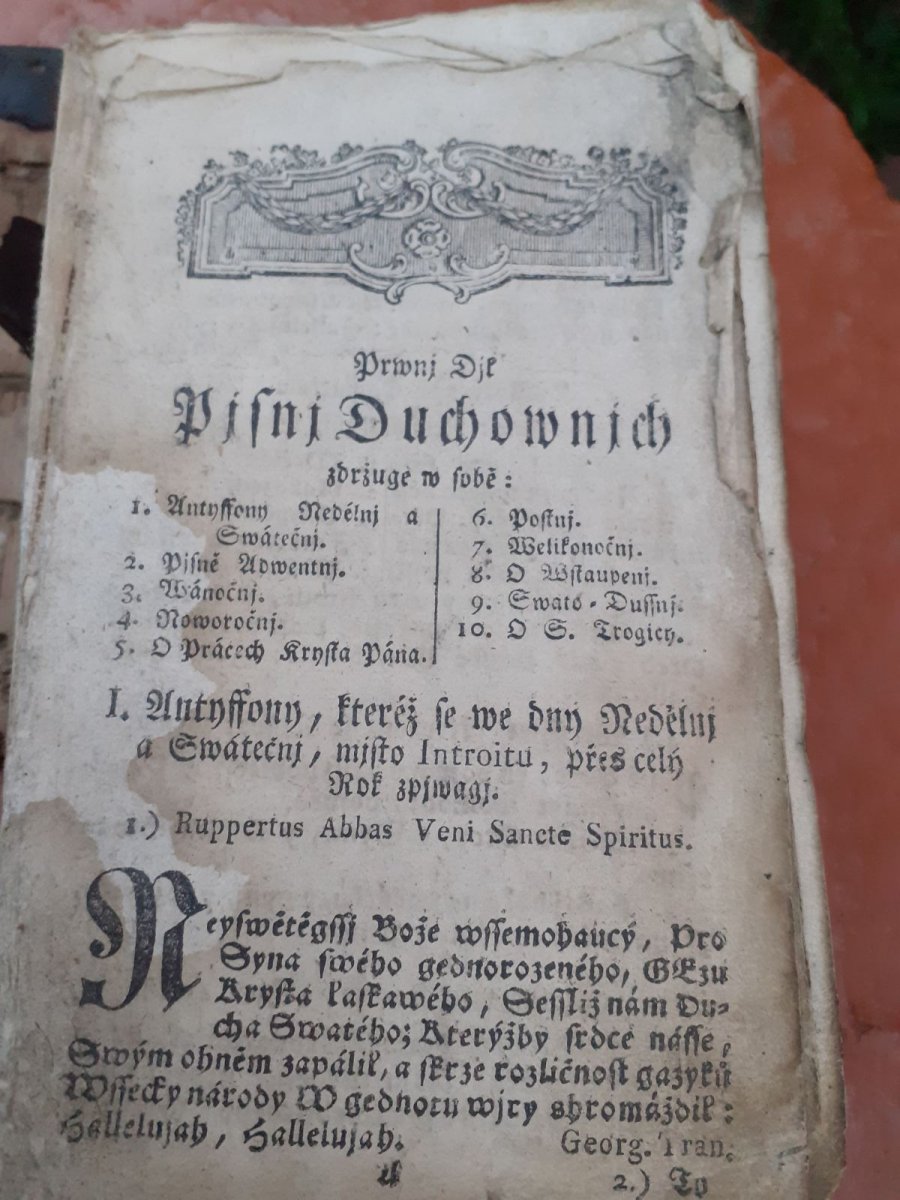 Prwnj Djl
Pjſnj Duchownjch
zdržuge w ſobě:
1. Antyffony Nedělnj a
Swátečnj.
2. Pjſně Adwentnj.
3. Wánočnj.
4. Noworočnj.
5. O Prácech Kryſta Pána.
6. Poſtnj.
7. Welikonočnj.
8. O Wſtaupenj.
9. Swato-Duſſnj.
10. O S. Trogicy.
I. Antyffony, kteréž ſe we dny Nedělnj
a Swátečnj, mjſto Introitu, přes celý
Rok zpjwagj.
1.) Ruppertus Abbas Veni Sancte Spiritus.
Neyſwětěgſſj Bože wſſemohaucý, Pro
Syna ſwého gednorozeného, GEzu
Kryſta laſkawého, Seſſliž nám Du-
cha Swatého; Kterýžby ſrdce náſſe,
Swým ohněm zapálil, a ſkrze rozličnoſt gazyků
Wſſecky národy W gednotu wjry shromáždil:
Hallelujah, Hallelujah.
Georg. Tran.
2.) To